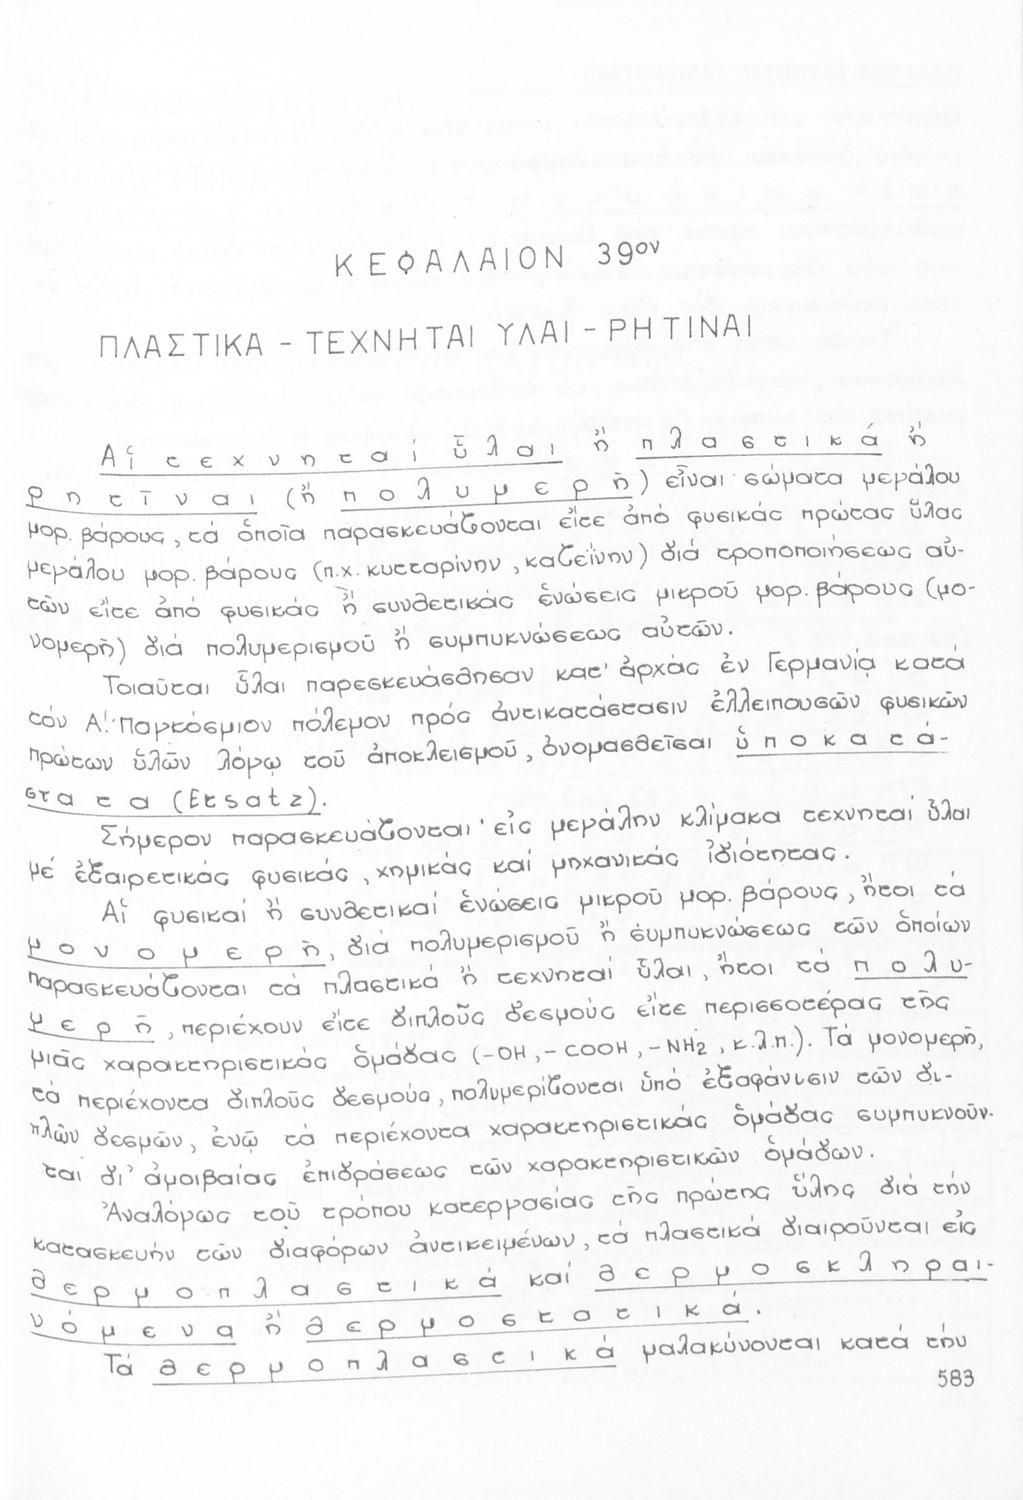 ΚΕΦΑΛΑΙΟΝ 39ον
ΠΛΑΣΤΙΚΑ - ΤΕΧΝΗΤΑΙ ΥΛΑΙ - ΡΗΤΙΝΑΙ
Αἱ τεχνηταί ὗλαι ἤ πλαστικά ἤ
ρητῖναι (ἤ πολυμερῆ) εἶναι σώματα μεγάλου
μορ. βάρους, τά ὁποῖα παρασκευάζονται εἴτε ἀπό φυσικάς πρώτας ὕλας
μεγάλου μορ. βάρους (π.χ. κυτταρίνην, καζεΐνην) διά τροποποιήσεως αὐ-
τῶν εἴτε ἀπό φυσικάς ἤ συνθετικάς ἑνώσεις μικροῦ μορ. βάρους (μο-
νομερῆ) διά πολυμερισμοῦ ἤ συμπυκνώσεως αὐτῶν.
Τοιαῦται ὗλαι παρεσκευάσθησαν κατ' ἀρχάς ἐν Γερμανίᾳ κατά
τόν Α! Παγκόσμιον πόλεμον πρός ἀντικατάστασιν ἐλλειπουσῶν φυσικῶν
πρώτων ὑλῶν λόγῳ τοῦ ἀποκλεισμοῦ, ὀνομασθεῖσαι ὑποκατά-
στατα (Etsatz).
Σήμερον παρασκευάζονται εἰς μεγάλην κλίμακα τεχνηταί ὗλαι
μέ ἐξαιρετικάς φυσικάς, χημικάς καί μηχανικάς ἰδιότητας.
Αἱ φυσικαί ἤ συνθετικαί ἑνώσεις μικροῦ μορ. βάρους, ἤτοι τά
μονομερῆ, διά πολυμερισμοῦ ἤ συμπυκνώσεως τῶν ὁποίων
παρασκευάζονται τά πλαστικά ἤ τεχνηταί ὗλαι, ἤτοι τά πολυ-
μερῆ, περιέχουν εἴτε διπλοῦς δεσμούς εἴτε περισσοτέρας τῆς
μιᾶς χαρακτηριστικάς ὁμάδας (-OH, -COOH, -NH2, κ.λ.π.). Τά μονομερῆ,
τά περιέχοντα διπλοῦς δεσμούς, πολυμερίζονται ὑπό ἐξαφάνισιν τῶν δι-
πλῶν δεσμῶν, ἐνῷ τά περιέχοντα χαρακτηριστικάς ὁμάδας συμπυκνοῦν-
ται δι' ἀμοιβαίας ἐπιδράσεως τῶν χαρακτηριστικῶν ὁμάδων.
Ἀναλόγως τοῦ τρόπου κατεργασίας τῆς πρώτης ὕλης διά τήν
κατασκευήν τῶν διαφόρων ἀντικειμένων, τά πλαστικά διαιροῦνται εἰς
θερμοπλαστικά καί θερμοσκληραι-
νόμενα ἤ θερμοστατικά.
Τά θερμοπλαστικά μαλακύνονται κατά τήν
583